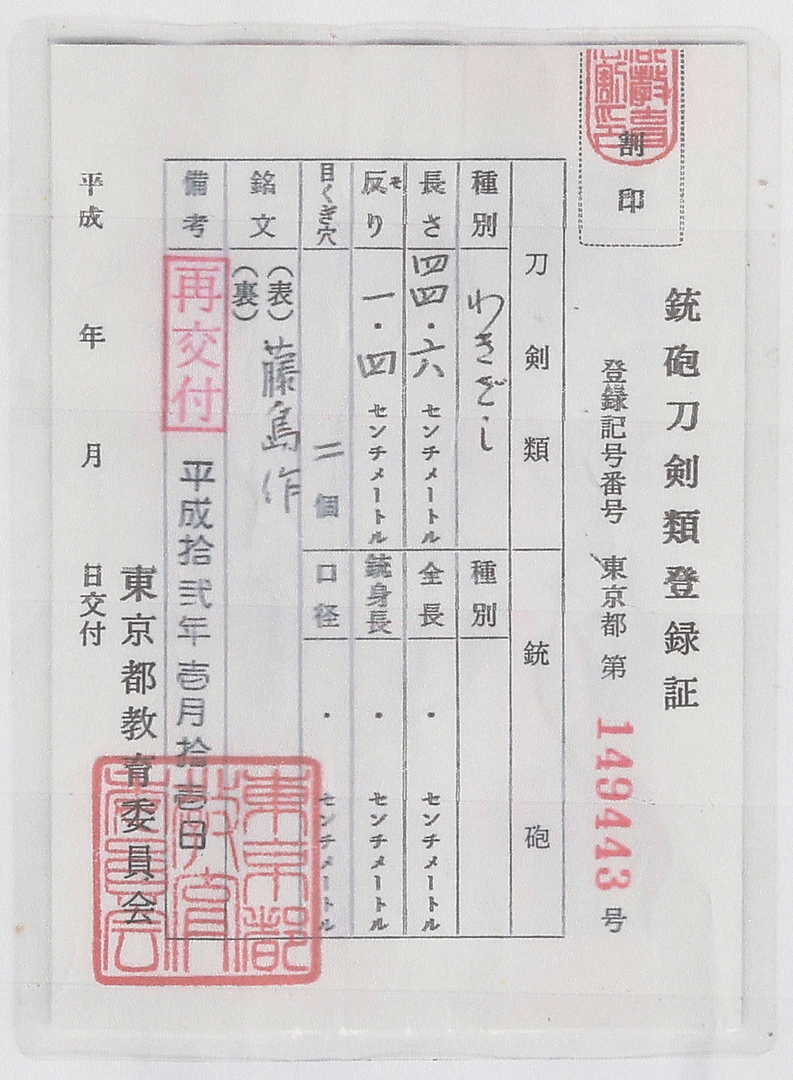 銃砲刀剣類登録証
割印
登録記号番号 東京都 第 149443 号
刀剣類
銃砲
種別 わきざし
種別
長さ 四四・六 センチメートル
全長 ・ センチメートル
反り 一・四 センチメートル
銃身長 ・ センチメートル
目くぎ穴 二 個
口径 ・ センチメートル
銘文 (表) 藤島作
(裏)
備考 再交付 平成拾弐年壱月拾壱日
東京都教育委員会
平成 年 月 日交付
東京都
教育
委員会